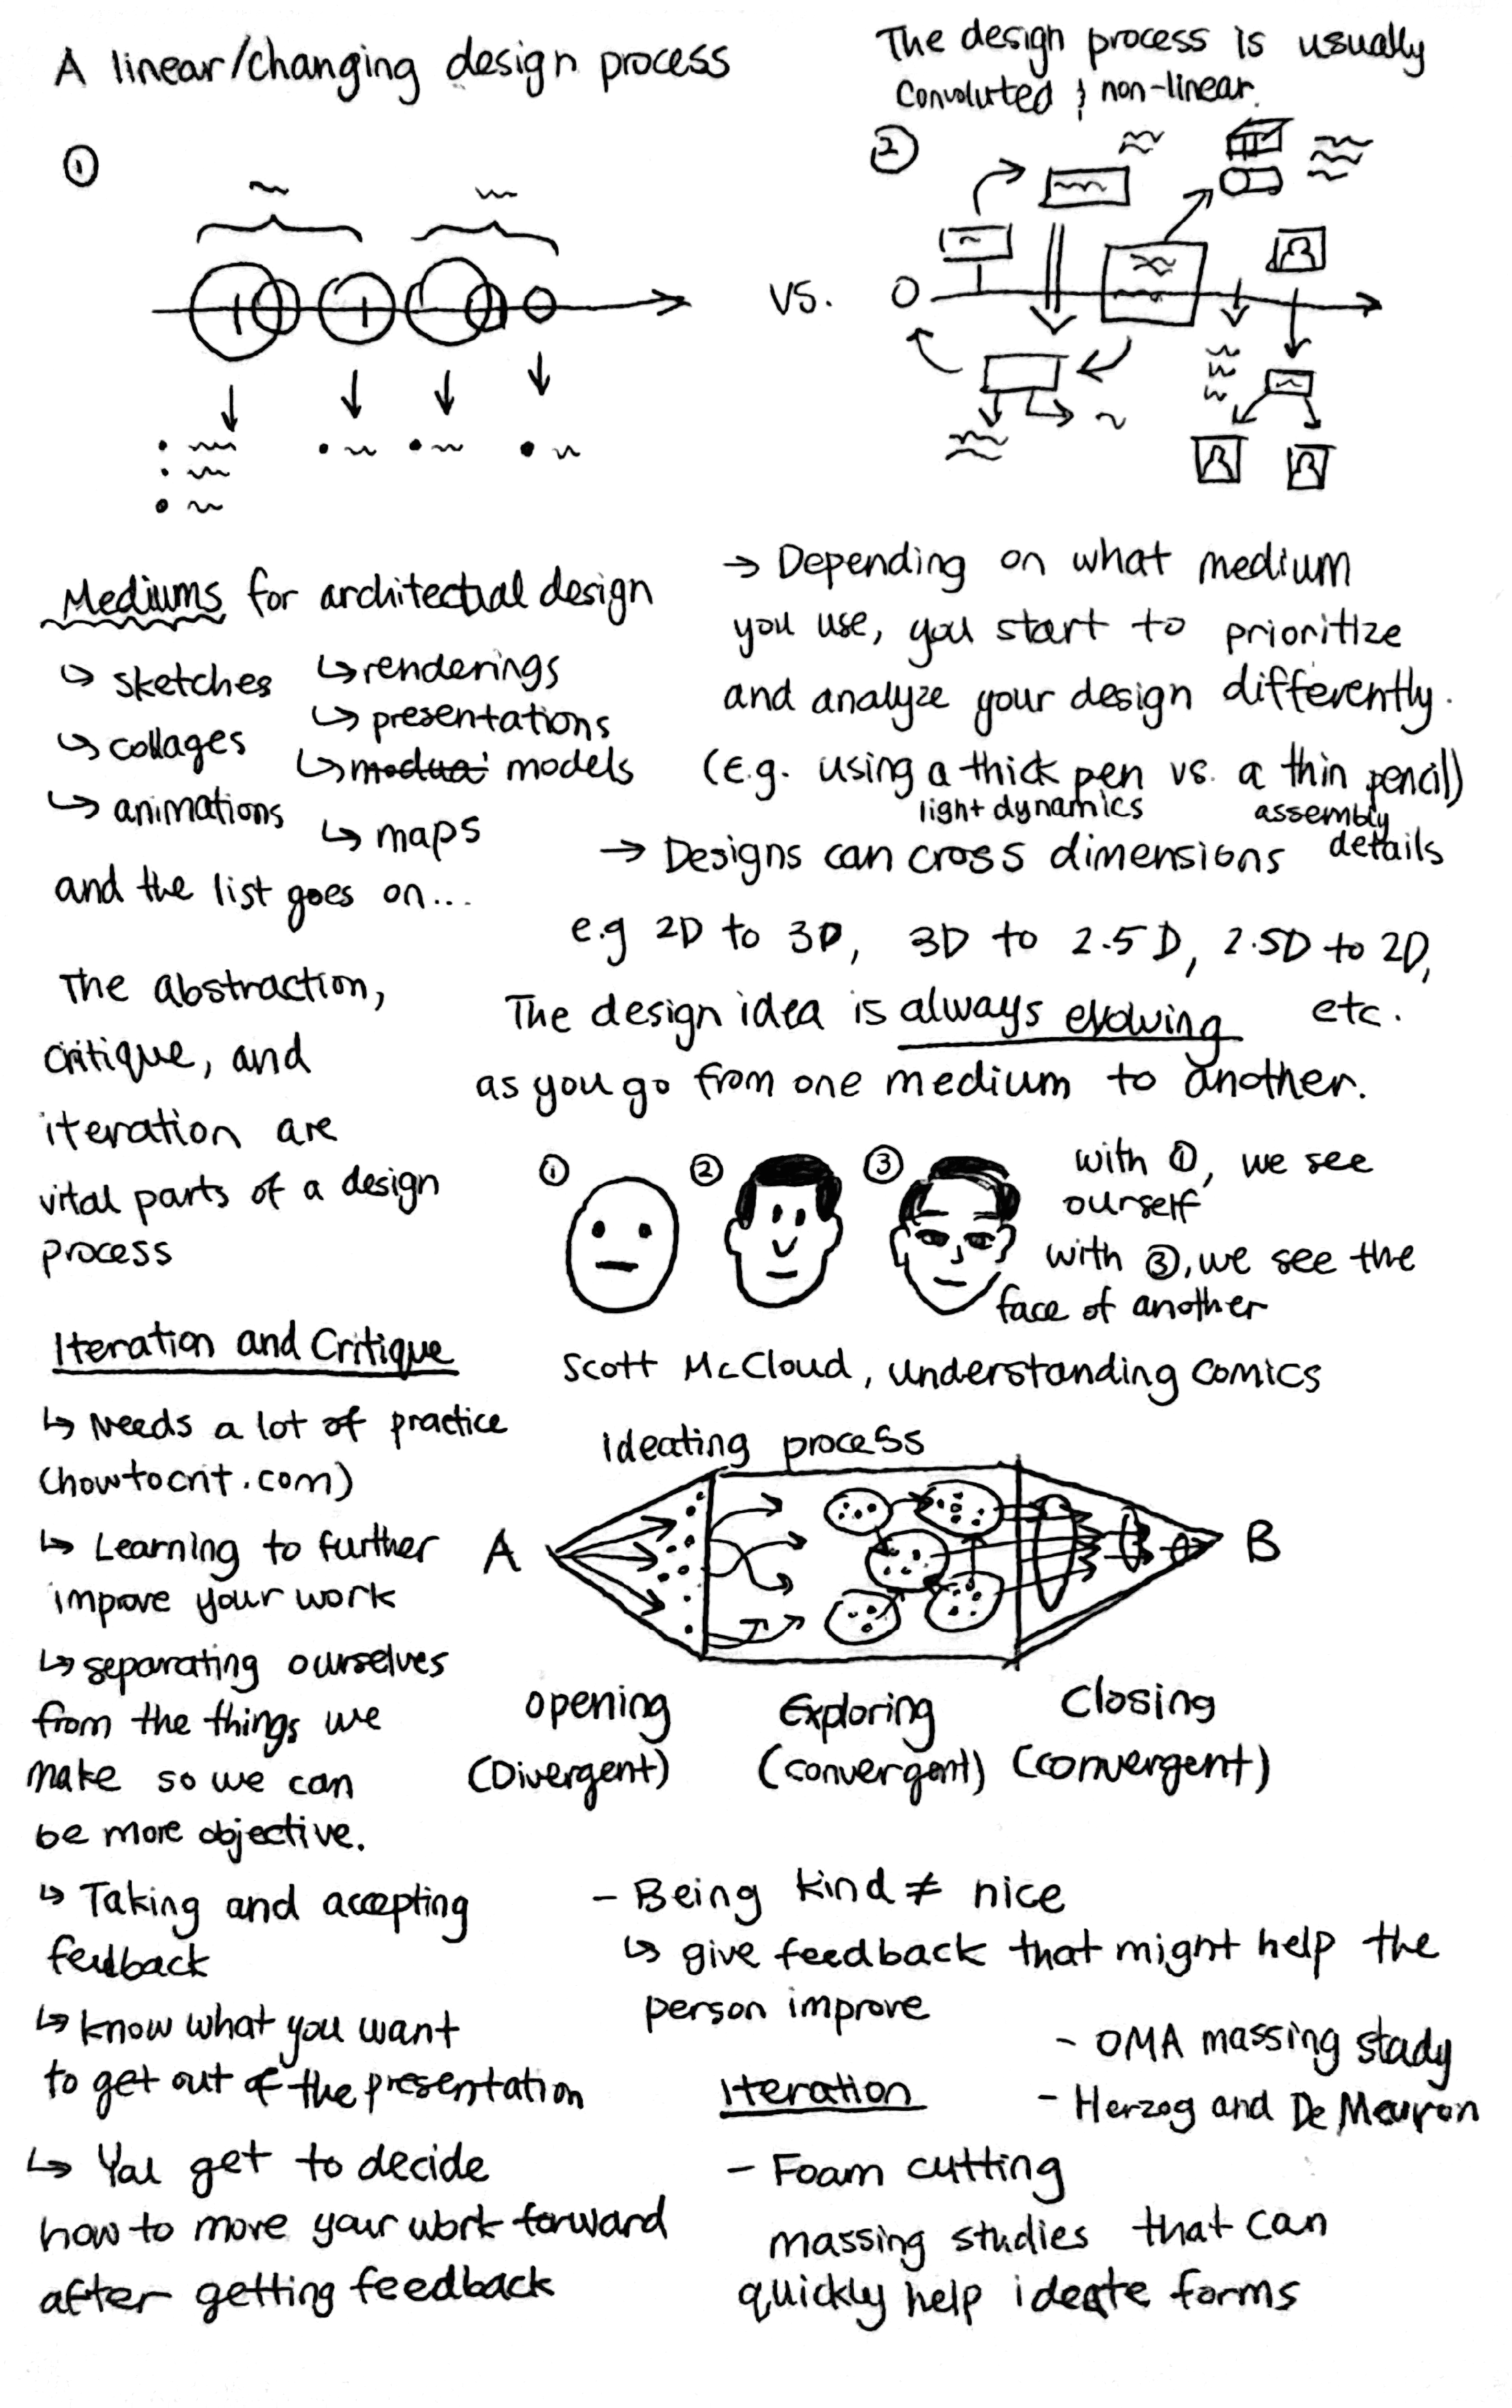 A linear/changing design process
The design process is usually
convoluted & non-linear.
①
②
vs.
Mediums for architectual design
↳ sketches
↳ renderings
↳ presentations
↳ collages
↳ models
↳ animations
↳ maps
and the list goes on...
→ Depending on what medium
you use, you start to prioritize
and analyze your design differently.
(E.g. using a thick pen vs. a thin pencil)
light dynamics
assembly
details
→ Designs can cross dimensions
e.g 2D to 3D, 3D to 2.5D, 2.5D to 2D,
etc.
The design idea is always evolving
as you go from one medium to another.
The abstraction,
critique, and
iteration are
vital parts of a design
process
① ② ③
with ①, we see
ourself
with ③, we see the
face of another
Scott McCloud, understanding comics
Iteration and Critique
↳ Needs a lot of practice
(howtocrit.com)
↳ Learning to further
improve your work
↳ separating ourselves
from the things we
make so we can
be more objective.
↳ Taking and accepting
feedback
↳ know what you want
to get out of the presentation
↳ You get to decide
how to move your work forward
after getting feedback
Ideating process
A
B
opening
(Divergent)
Exploring
(convergent)
Closing
(convergent)
- Being kind ≠ nice
↳ give feedback that might help the
person improve
Iteration
- OMA massing study
- Herzog and De Meuron
- Foam cutting
massing studies that can
quickly help ideate forms